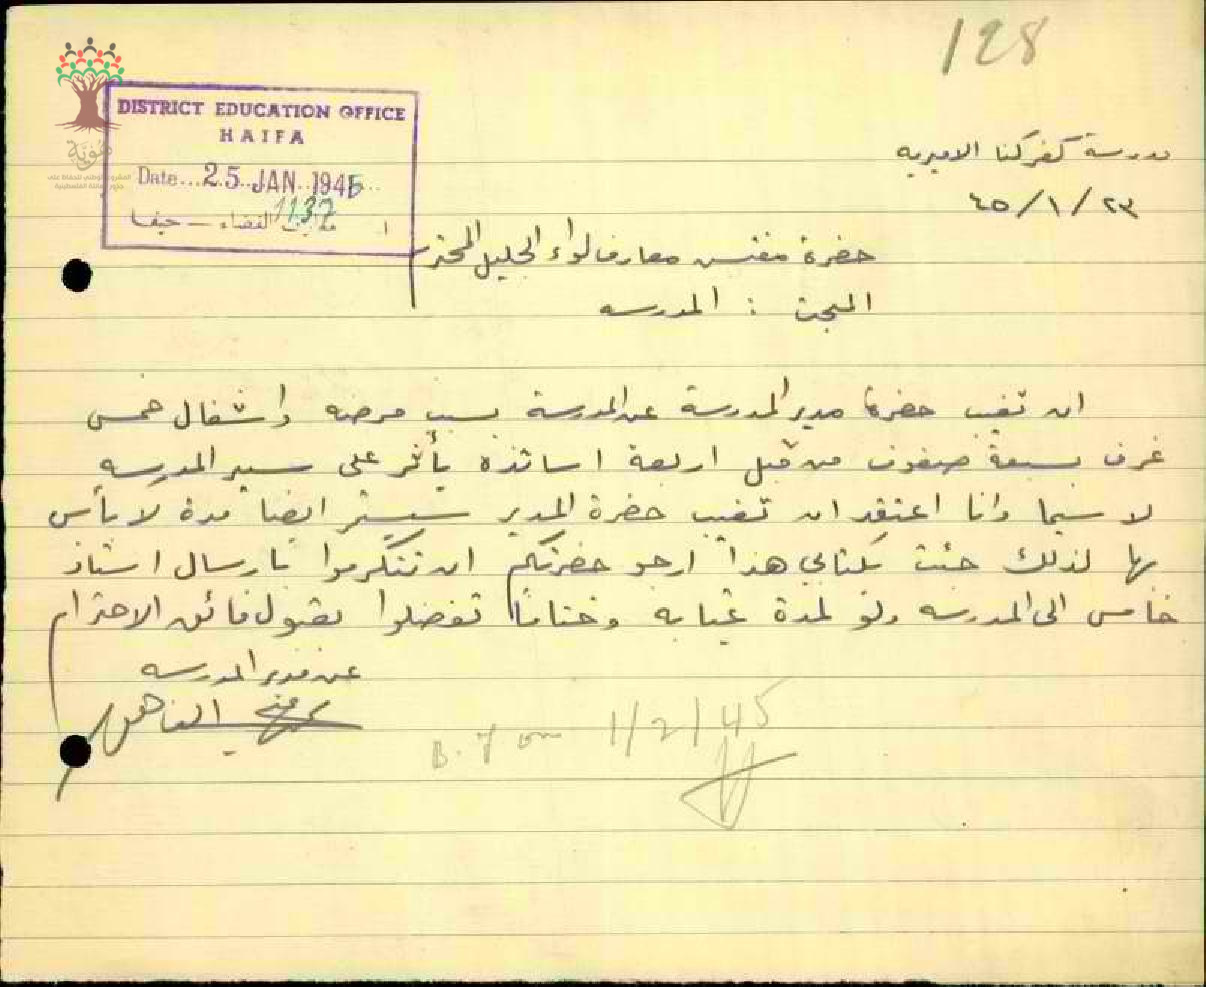 128
DISTRICT EDUCATION OFFICE
HAIFA
Date...25 JAN 1945
1137
القضاء – حيفا
هوية
مدرسة كفركنا الاميريه
٢٣/١/٤٥
حضرة مفتش معارف لواء الجليل المحترم
المبحث : المدرسه
ان تغيب حضرة مدير المدرسة عن المدرسة بسبب مرضه واشغال خمس
غرف بسبعة صفوف من قبل اربعة اساتذة يأثر على سير المدرسه
لا سيما وانا اعتقد ان تغيب حضرة المدير سيستمر ايضا مدة لا بأس
بها لذلك جئت بكتابي هذا ارجو حضرتكم ان تتكرموا بارسال استاذ
خامس الى المدرسه ولو لمدة غيابه وختاما تفضلوا بقبول فائق الاحترام
عن مدير المدرسه
B. f on 1/2/45